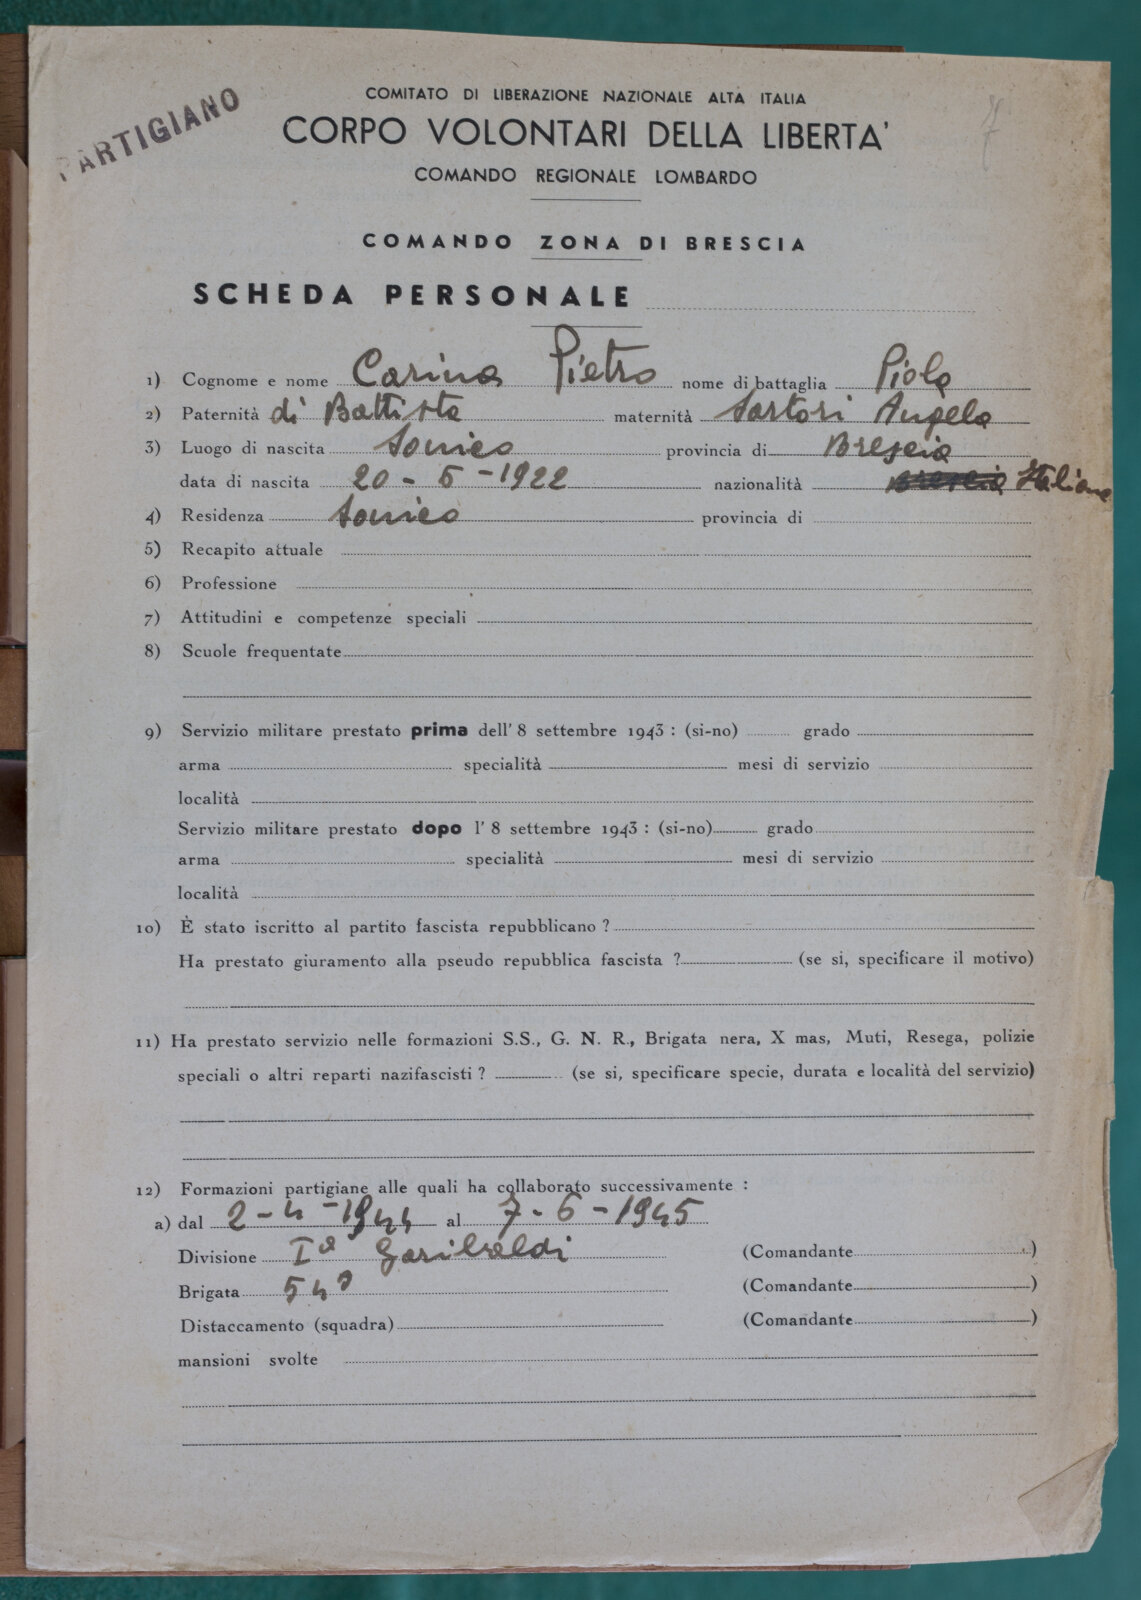 PARTIGIANO
COMITATO DI LIBERAZIONE NAZIONALE ALTA ITALIA
CORPO VOLONTARI DELLA LIBERTA'
COMANDO REGIONALE LOMBARDO
COMANDO ZONA DI BRESCIA
SCHEDA PERSONALE
1) Cognome e nome Carina Pietro nome di battaglia Piola
2) Paternità di Battista maternità Sartori Angela
3) Luogo di nascita Sonico provincia di Brescia
data di nascita 20 - 5 - 1922 nazionalità Brescia Italiana
4) Residenza Sonico provincia di
5) Recapito attuale
6) Professione
7) Attitudini e competenze speciali
8) Scuole frequentate
9) Servizio militare prestato prima dell' 8 settembre 1943 : (si-no) grado
arma specialità mesi di servizio
località
Servizio militare prestato dopo l' 8 settembre 1943 : (si-no) grado
arma specialità mesi di servizio
località
10) È stato iscritto al partito fascista repubblicano ?
Ha prestato giuramento alla pseudo repubblica fascista ? (se si, specificare il motivo)
11) Ha prestato servizio nelle formazioni S.S., G. N. R., Brigata nera, X mas, Muti, Resega, polizie
speciali o altri reparti nazifascisti ? (se si, specificare specie, durata e località del servizio)
12) Formazioni partigiane alle quali ha collaborato successivamente :
a) dal 2 - 4 - 1944 al 7 - 6 - 1945
Divisione Iª Garibaldi (Comandante )
Brigata 54ª (Comandante )
Distaccamento (squadra) (Comandante )
mansioni svolte